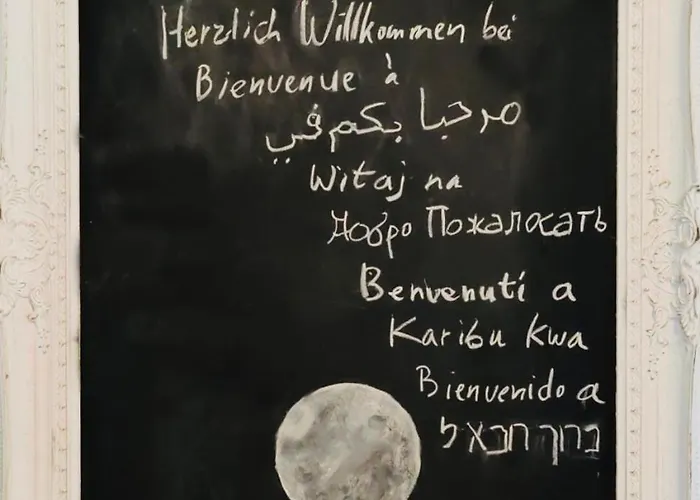 Herzlich Willkommen bei
Bienvenue à
مرحبا بكم في
Witaj na
Добро Пожалосать
Benvenuti a
Karibu kwa
Bienvenido a
ברוך חבא ל